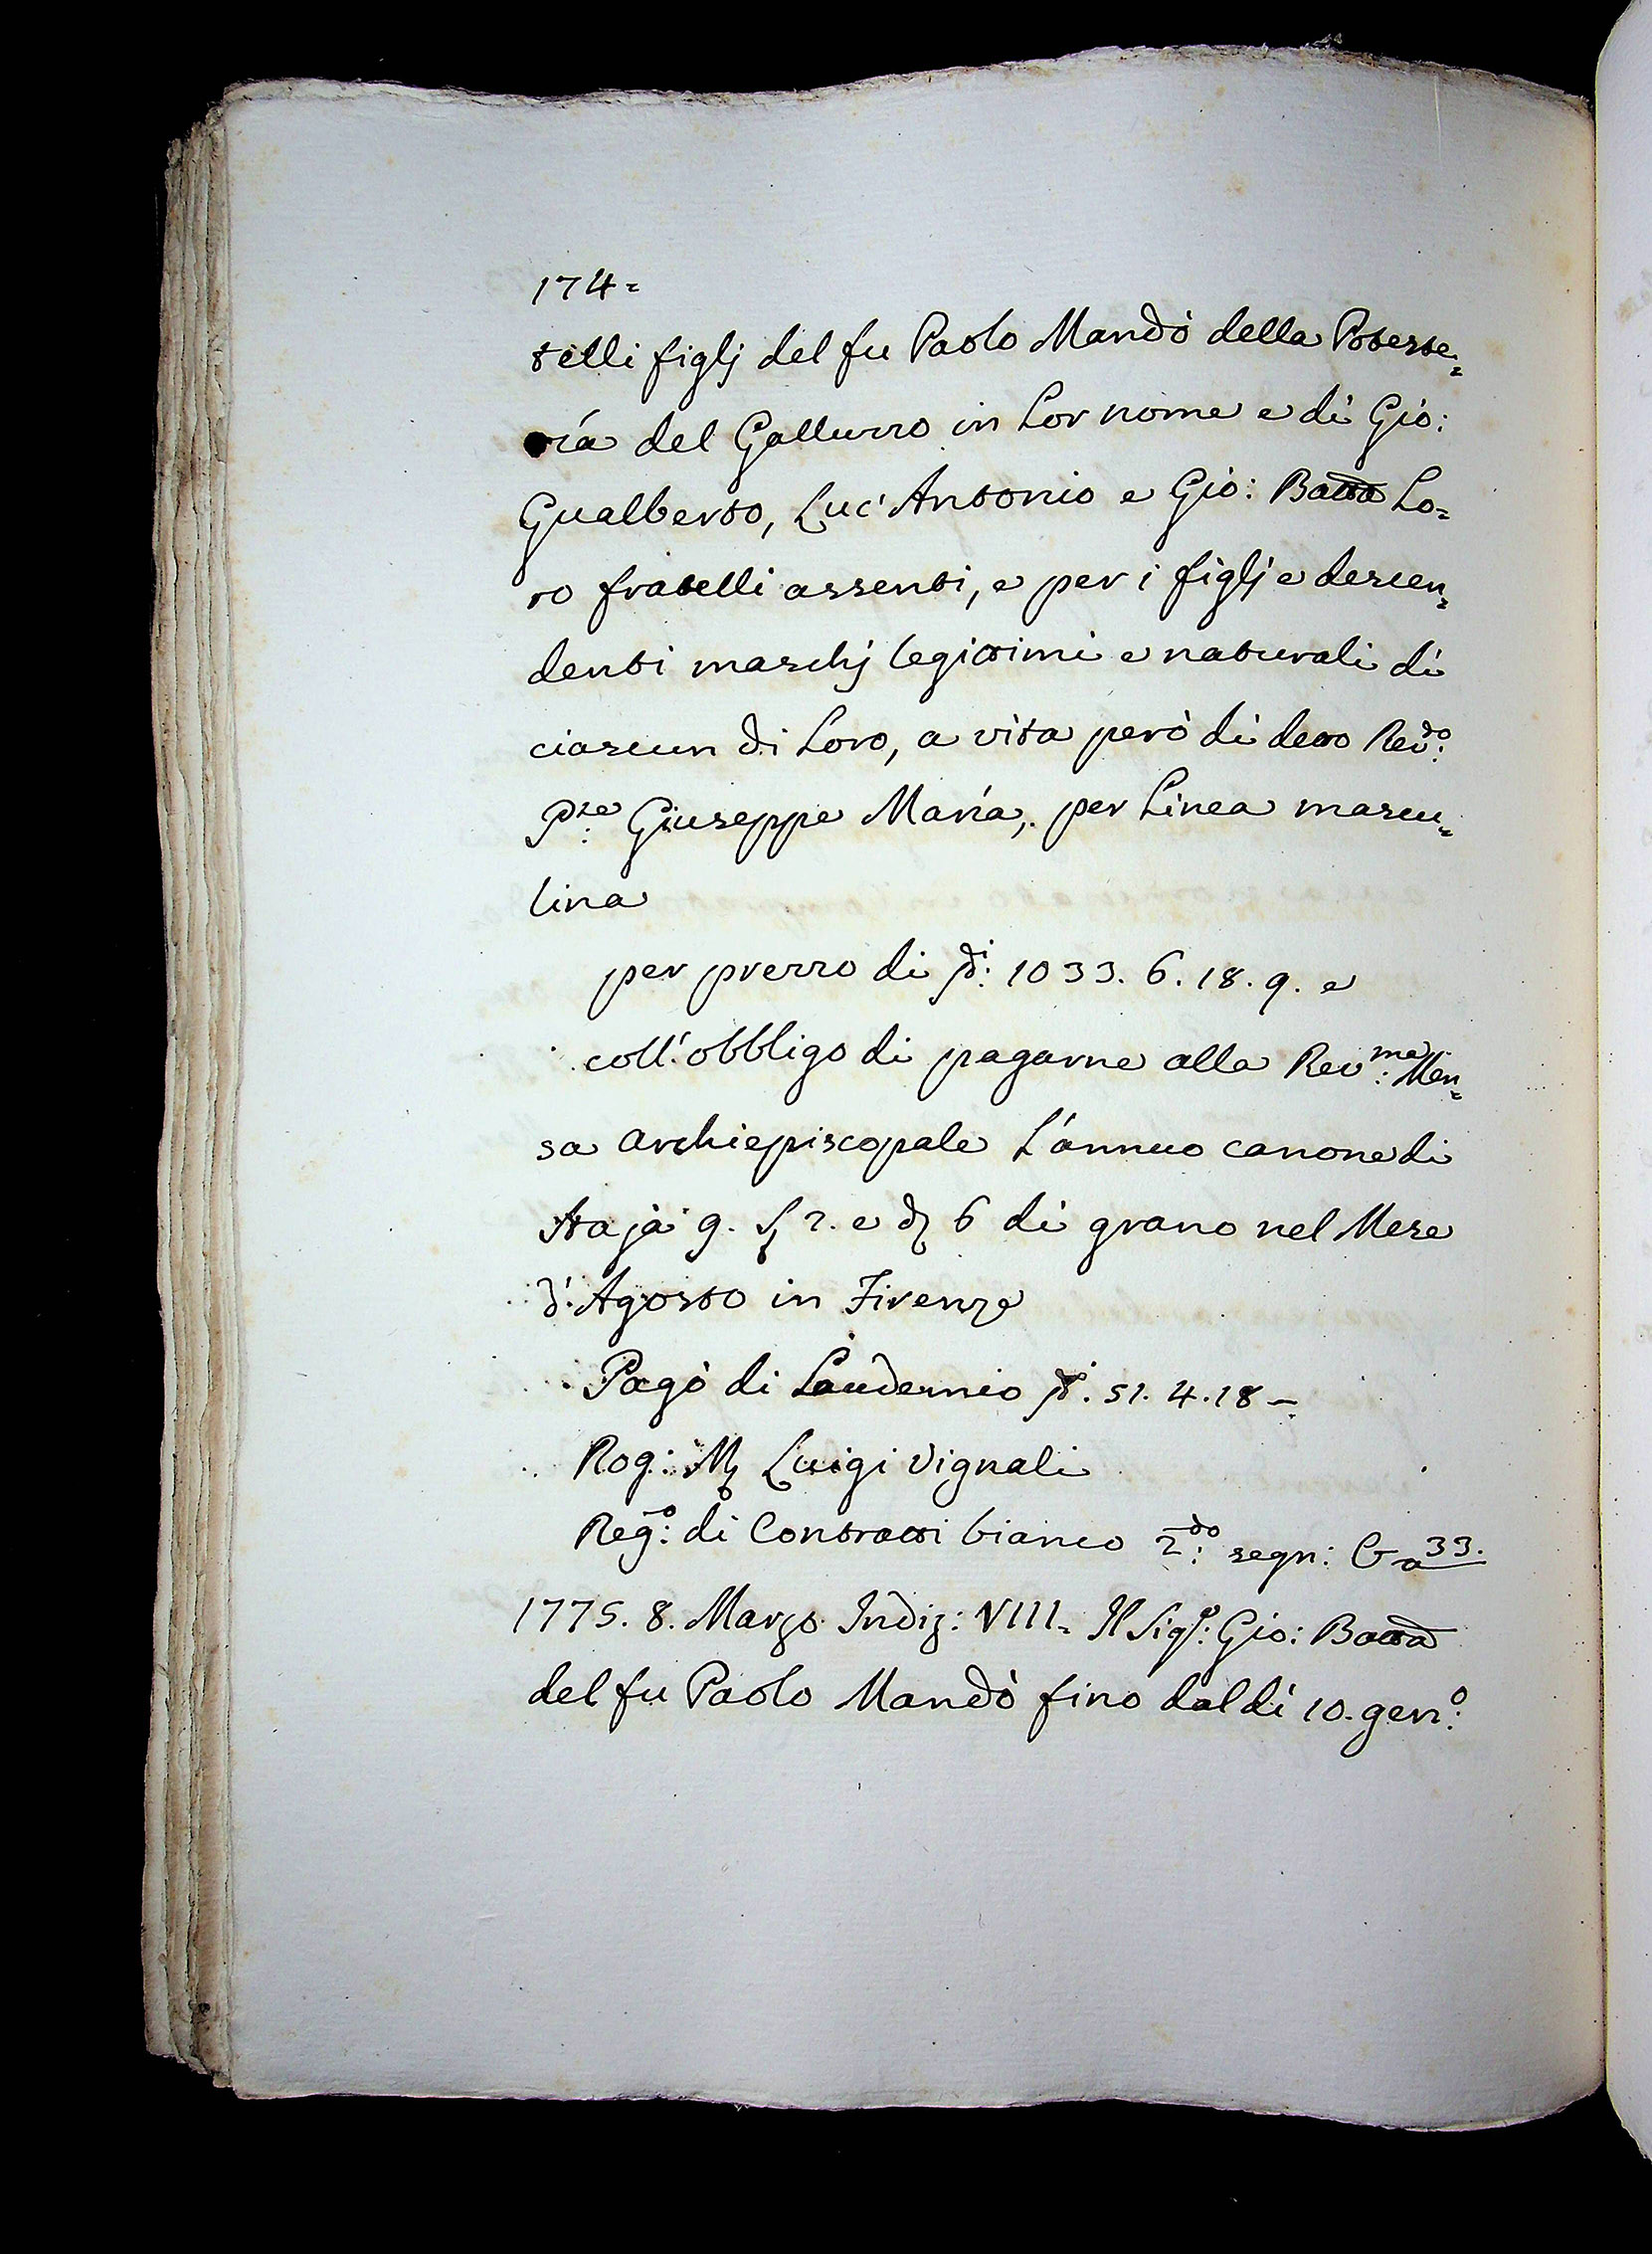 174=
telli figlj del fu Paolo Mandò della Poteste=
ría del Galluzzo in Lor nome e di Gio:
Gualberto, Luc'Antonio e Gio: Batta Lo=
ro fratelli assenti, e per i figlj e descen=
denti maschj legittimi e naturali di
ciascun di Loro, a vita però di detto Revdo:
Pre: Giuseppe María, per Linea mascu=
lina
per prezzo di 1033. 6. 18. 9. e
coll'obbligo di pagarne alla Revma: Men=
sa Archiepiscopale L'annuo canone di
Staja 9. 2. e 6 di grano nel Mese
d'Agosto in Firenze
Pagò di Laudemio 51. 4. 18 –
Rog: Luigi Vignali
Rego: di Contratti bianco 2do: segn: G a 33.
1775. 8. Marzo Indiz: VIII. Il Sigr: Gio: Batta
del fu Paolo Mandò fino dal dì 10. genno: